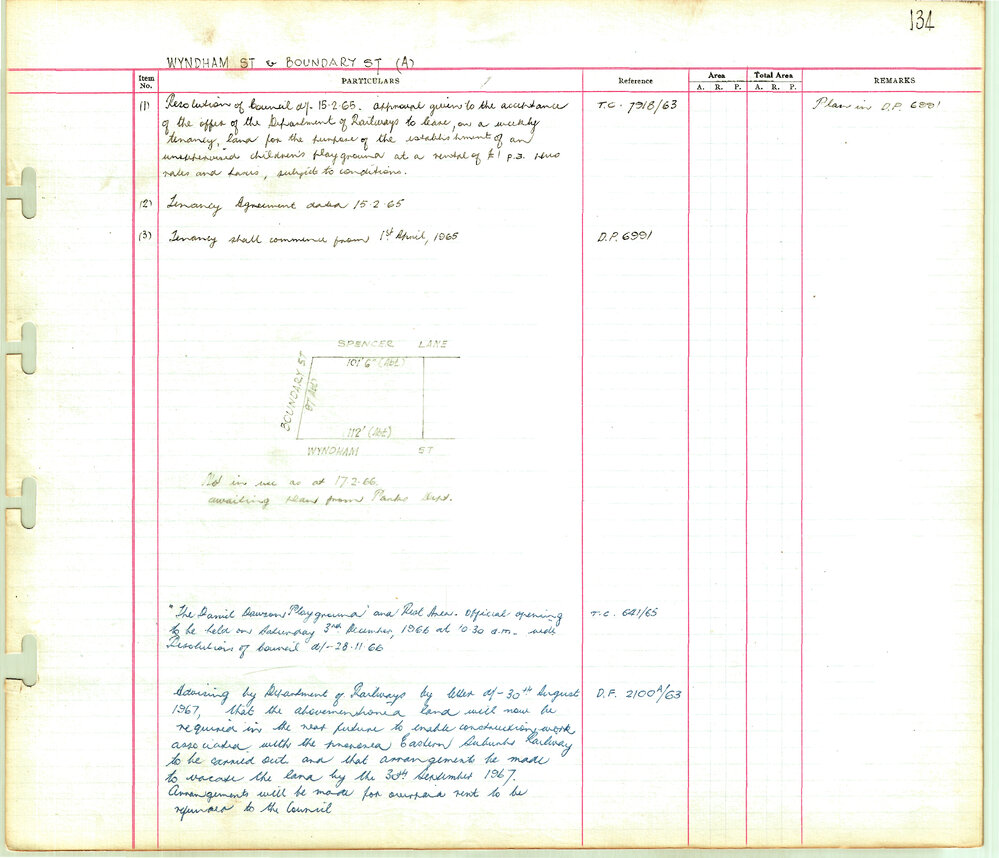 134
WYNDHAM ST & BOUNDARY ST (A)
Item No. PARTICULARS Reference Area Total Area REMARKS
A. R. P. A. R. P.
(1) Resolution of Council d/- 15-2-65. approval given to the acceptance T.C. 7918/63 Plan in D.P. 6991
of the offer of the Department of Railways to lease, on a weekly
tenancy, land for the purpose of the establishment of an
unsupervised children's playground at a rental of £1 p.a. plus
rates and taxes, subject to conditions.
(2) Tenancy Agreement dated 15-2-65
(3) Tenancy shall commence from 1st April, 1965 D.P. 6991
SPENCER LANE
101'6" (Abt)
BOUNDARY ST
(Abt)
112' (Abt)
WYNDHAM ST
Not in use as at 17.2.66.
awaiting plans from Parks Dept.
"The Daniel Dawson Playground" and Rest Area. Official opening T.C. 641/65
to be held on Saturday 3rd December, 1966 at 10 30 a.m. vide
Resolution of Council d/- 28-11-66
Advising by Department of Railways by letter d/- 30th August D.F. 2100A/63
1967, that the abovementioned land will now be
required in the near future to enable construction work
associated with the proposed Eastern Suburbs Railway
to be carried out and that arrangements be made
to vacate the land by the 30th September 1967.
Arrangements will be made for overpaid rent to be
refunded to the Council